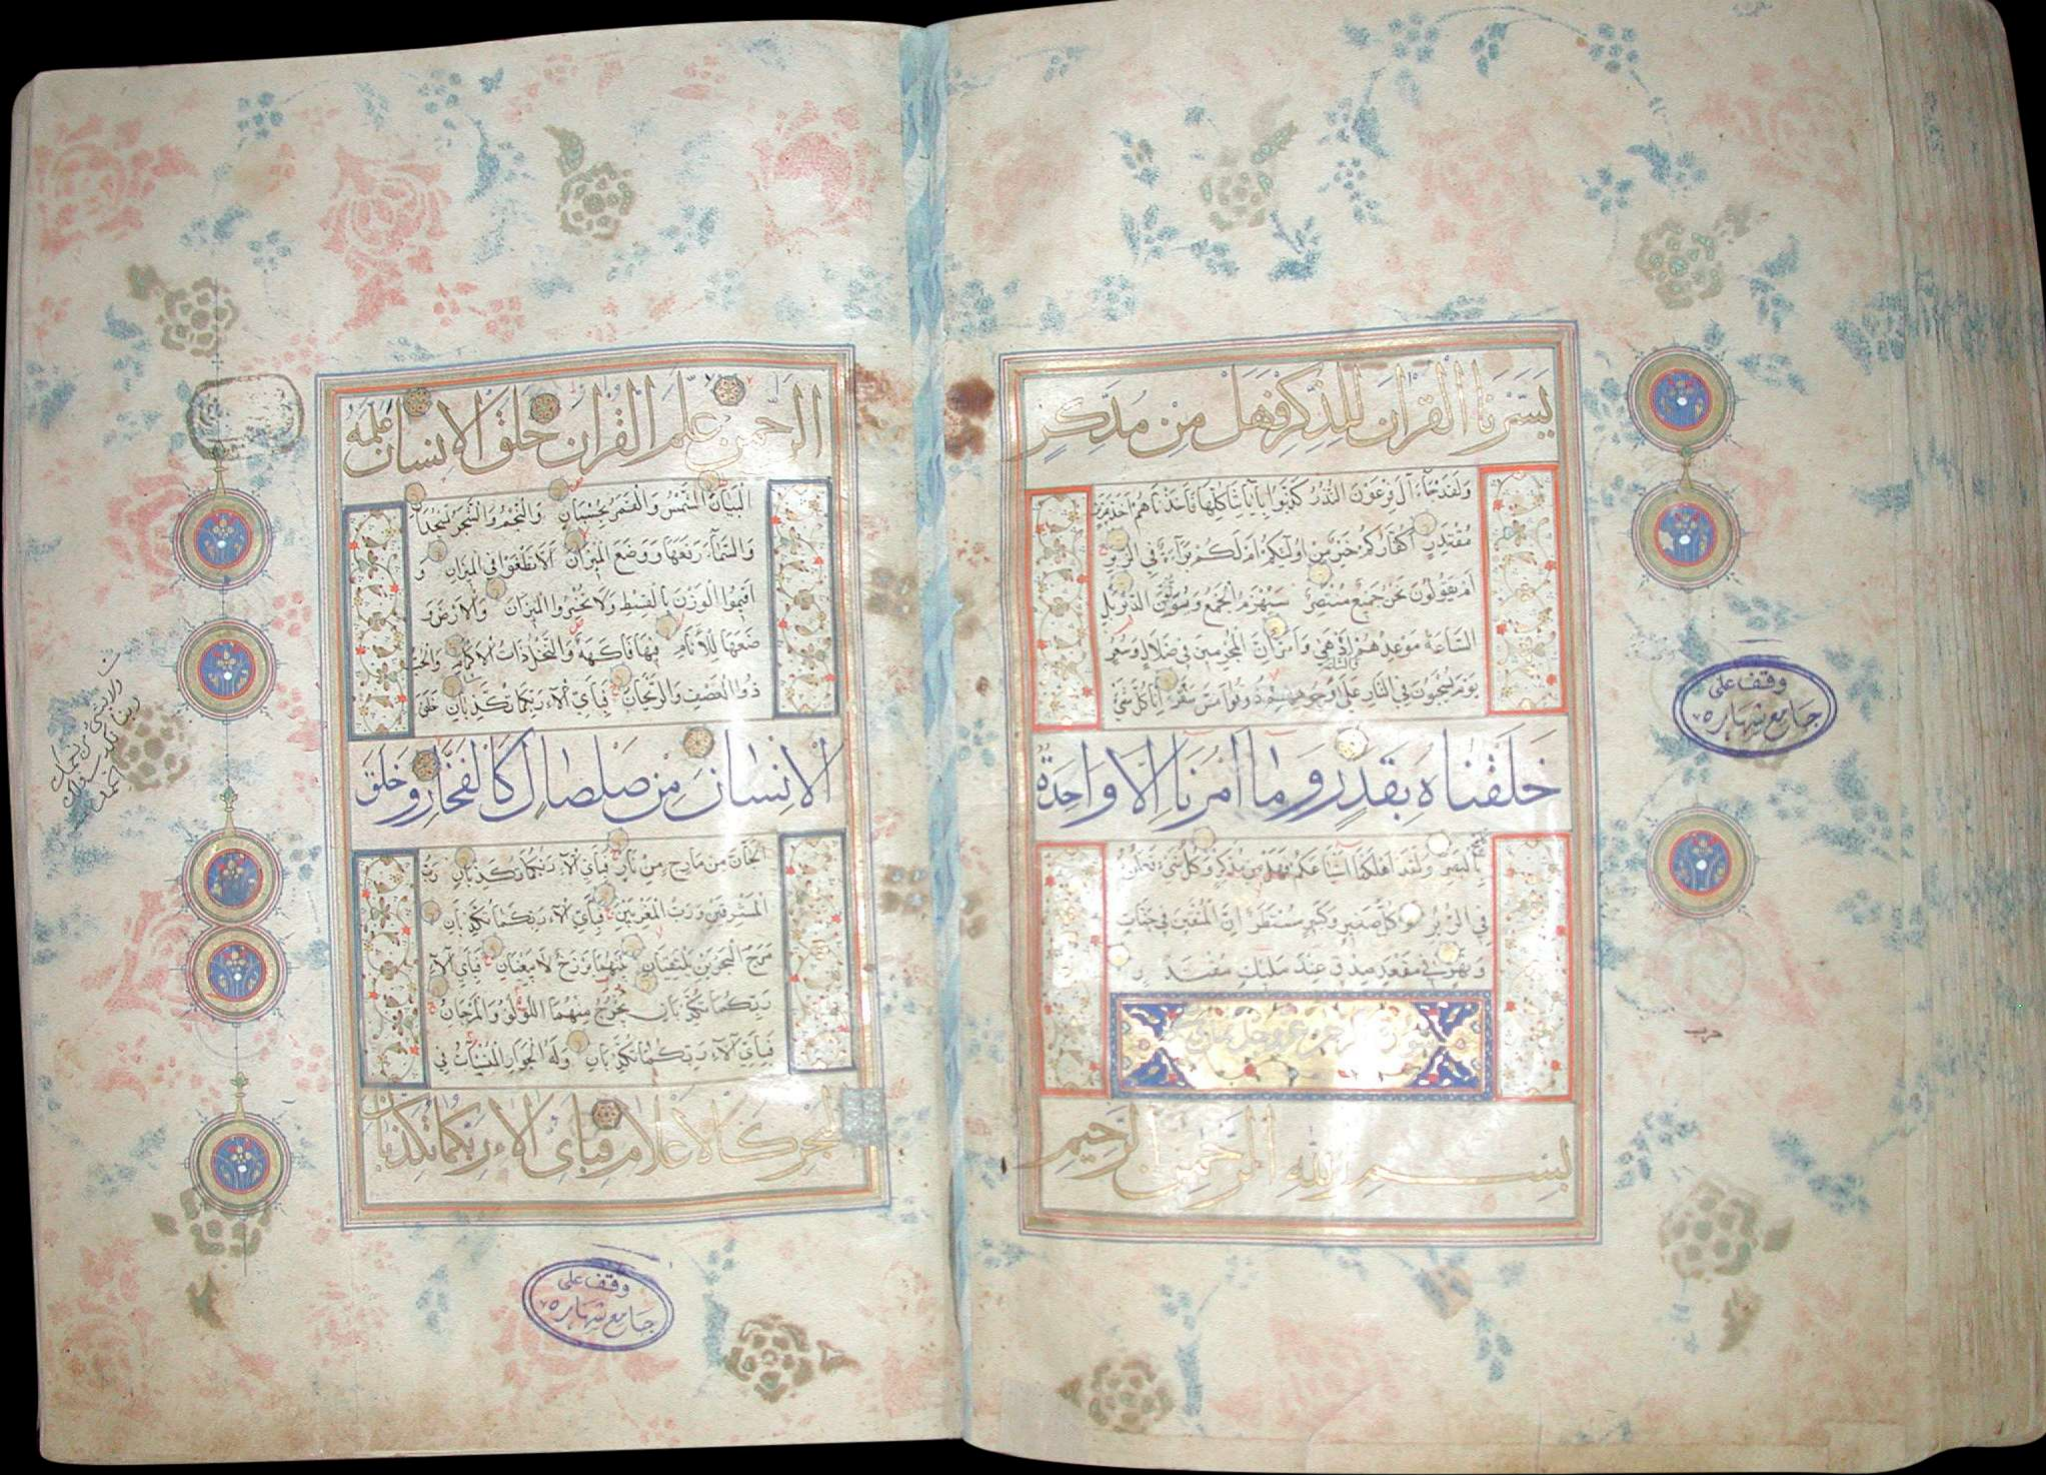 يَسَّرْنَا الْقُرْآنَ لِلذِّكْرِ فَهَلْ مِنْ مُدَّكِرٍ
وَلَقَدْ جَاءَ آلَ فِرْعَوْنَ النُّذُرُ كَذَّبُوا بِآيَاتِنَا كُلِّهَا فَأَخَذْنَاهُمْ أَخْذَ عَزِيزٍ
مُقْتَدِرٍ أَكُفَّارُكُمْ خَيْرٌ مِنْ أُولَئِكُمْ أَمْ لَكُمْ بَرَاءَةٌ فِي الزُّبُرِ
أَمْ يَقُولُونَ نَحْنُ جَمِيعٌ مُنْتَصِرٌ سَيُهْزَمُ الْجَمْعُ وَيُوَلُّونَ الدُّبُرَ بَلِ
السَّاعَةُ مَوْعِدُهُمْ وَالسَّاعَةُ أَدْهَى وَأَمَرُّ إِنَّ الْمُجْرِمِينَ فِي ضَلَالٍ وَسُعُرٍ
يَوْمَ يُسْحَبُونَ فِي النَّارِ عَلَى وُجُوهِهِمْ ذُوقُوا مَسَّ سَقَرَ إِنَّا كُلَّ شَيْءٍ
خَلَقْنَاهُ بِقَدَرٍ وَمَا أَمْرُنَا إِلَّا وَاحِدَةٌ
كَلَمْحٍ بِالْبَصَرِ وَلَقَدْ أَهْلَكْنَا أَشْيَاعَكُمْ فَهَلْ مِنْ مُدَّكِرٍ وَكُلُّ شَيْءٍ فَعَلُوهُ
فِي الزُّبُرِ وَكُلُّ صَغِيرٍ وَكَبِيرٍ مُسْتَطَرٌ إِنَّ الْمُتَّقِينَ فِي جَنَّاتٍ
وَنَهَرٍ فِي مَقْعَدِ صِدْقٍ عِنْدَ مَلِيكٍ مُقْتَدِرٍ
سورة الرحمن عز وجل
بِسْمِ اللَّهِ الرَّحْمَنِ الرَّحِيمِ
وقف على
جامع شهاره
حزب
الرَّحْمَنُ عَلَّمَ الْقُرْآنَ خَلَقَ الْإِنْسَانَ عَلَّمَهُ
الْبَيَانَ الشَّمْسُ وَالْقَمَرُ بِحُسْبَانٍ وَالنَّجْمُ وَالشَّجَرُ يَسْجُدَانِ
وَالسَّمَاءَ رَفَعَهَا وَوَضَعَ الْمِيزَانَ أَلَّا تَطْغَوْا فِي الْمِيزَانِ وَ
أَقِيمُوا الْوَزْنَ بِالْقِسْطِ وَلَا تُخْسِرُوا الْمِيزَانَ وَالْأَرْضَ وَ
ضَعَهَا لِلْأَنَامِ فِيهَا فَاكِهَةٌ وَالنَّخْلُ ذَاتُ الْأَكْمَامِ وَالْحَبُّ
ذُو الْعَصْفِ وَالرَّيْحَانُ فَبِأَيِّ آلَاءِ رَبِّكُمَا تُكَذِّبَانِ خَلَقَ
الْإِنْسَانَ مِنْ صَلْصَالٍ كَالْفَخَّارِ وَخَلَقَ
الْجَانَّ مِنْ مَارِجٍ مِنْ نَارٍ فَبِأَيِّ آلَاءِ رَبِّكُمَا تُكَذِّبَانِ رَبُّ
الْمَشْرِقَيْنِ وَرَبُّ الْمَغْرِبَيْنِ فَبِأَيِّ آلَاءِ رَبِّكُمَا تُكَذِّبَانِ
مَرَجَ الْبَحْرَيْنِ يَلْتَقِيَانِ بَيْنَهُمَا بَرْزَخٌ لَا يَبْغِيَانِ فَبِأَيِّ آلَاءِ
رَبِّكُمَا تُكَذِّبَانِ يَخْرُجُ مِنْهُمَا اللُّؤْلُؤُ وَالْمَرْجَانُ
فَبِأَيِّ آلَاءِ رَبِّكُمَا تُكَذِّبَانِ وَلَهُ الْجَوَارِ الْمُنْشَآتُ فِي
الْبَحْرِ كَالْأَعْلَامِ فَبِأَيِّ آلَاءِ رَبِّكُمَا تُكَذِّبَانِ
وقف على
جامع شهاره